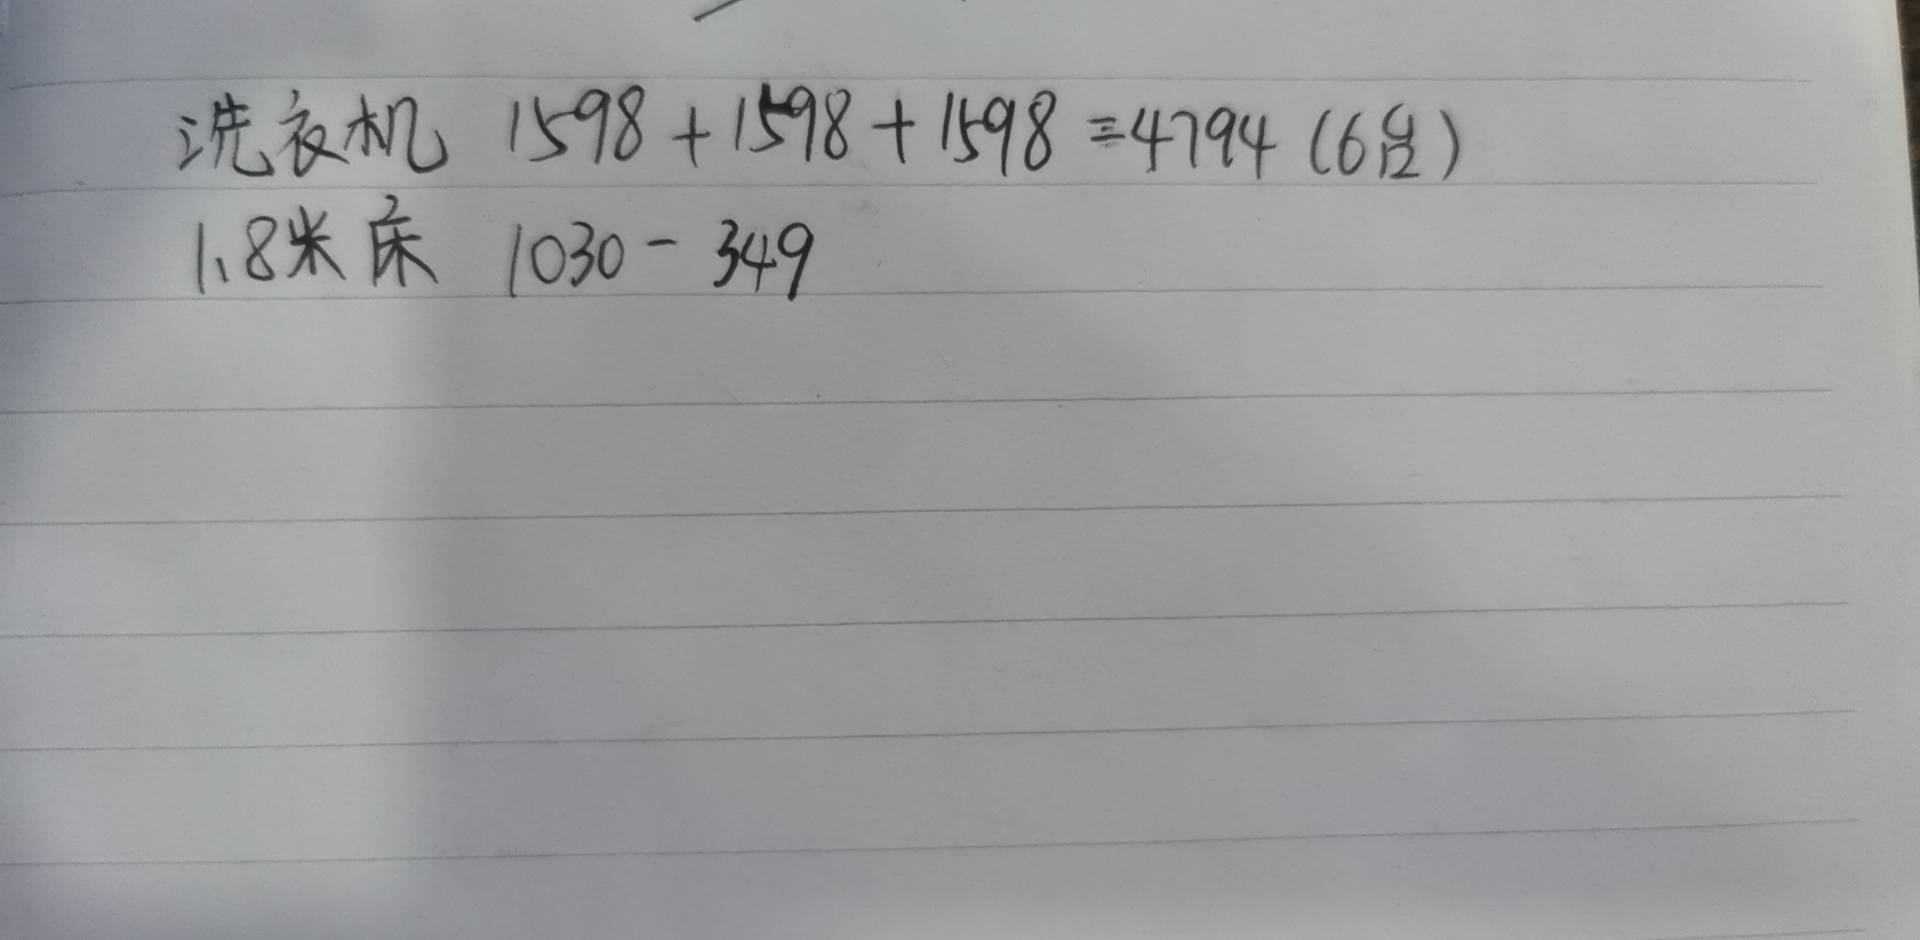 洗衣机 1598+1598+1598=4794(6台)
1.8米床 1030-349